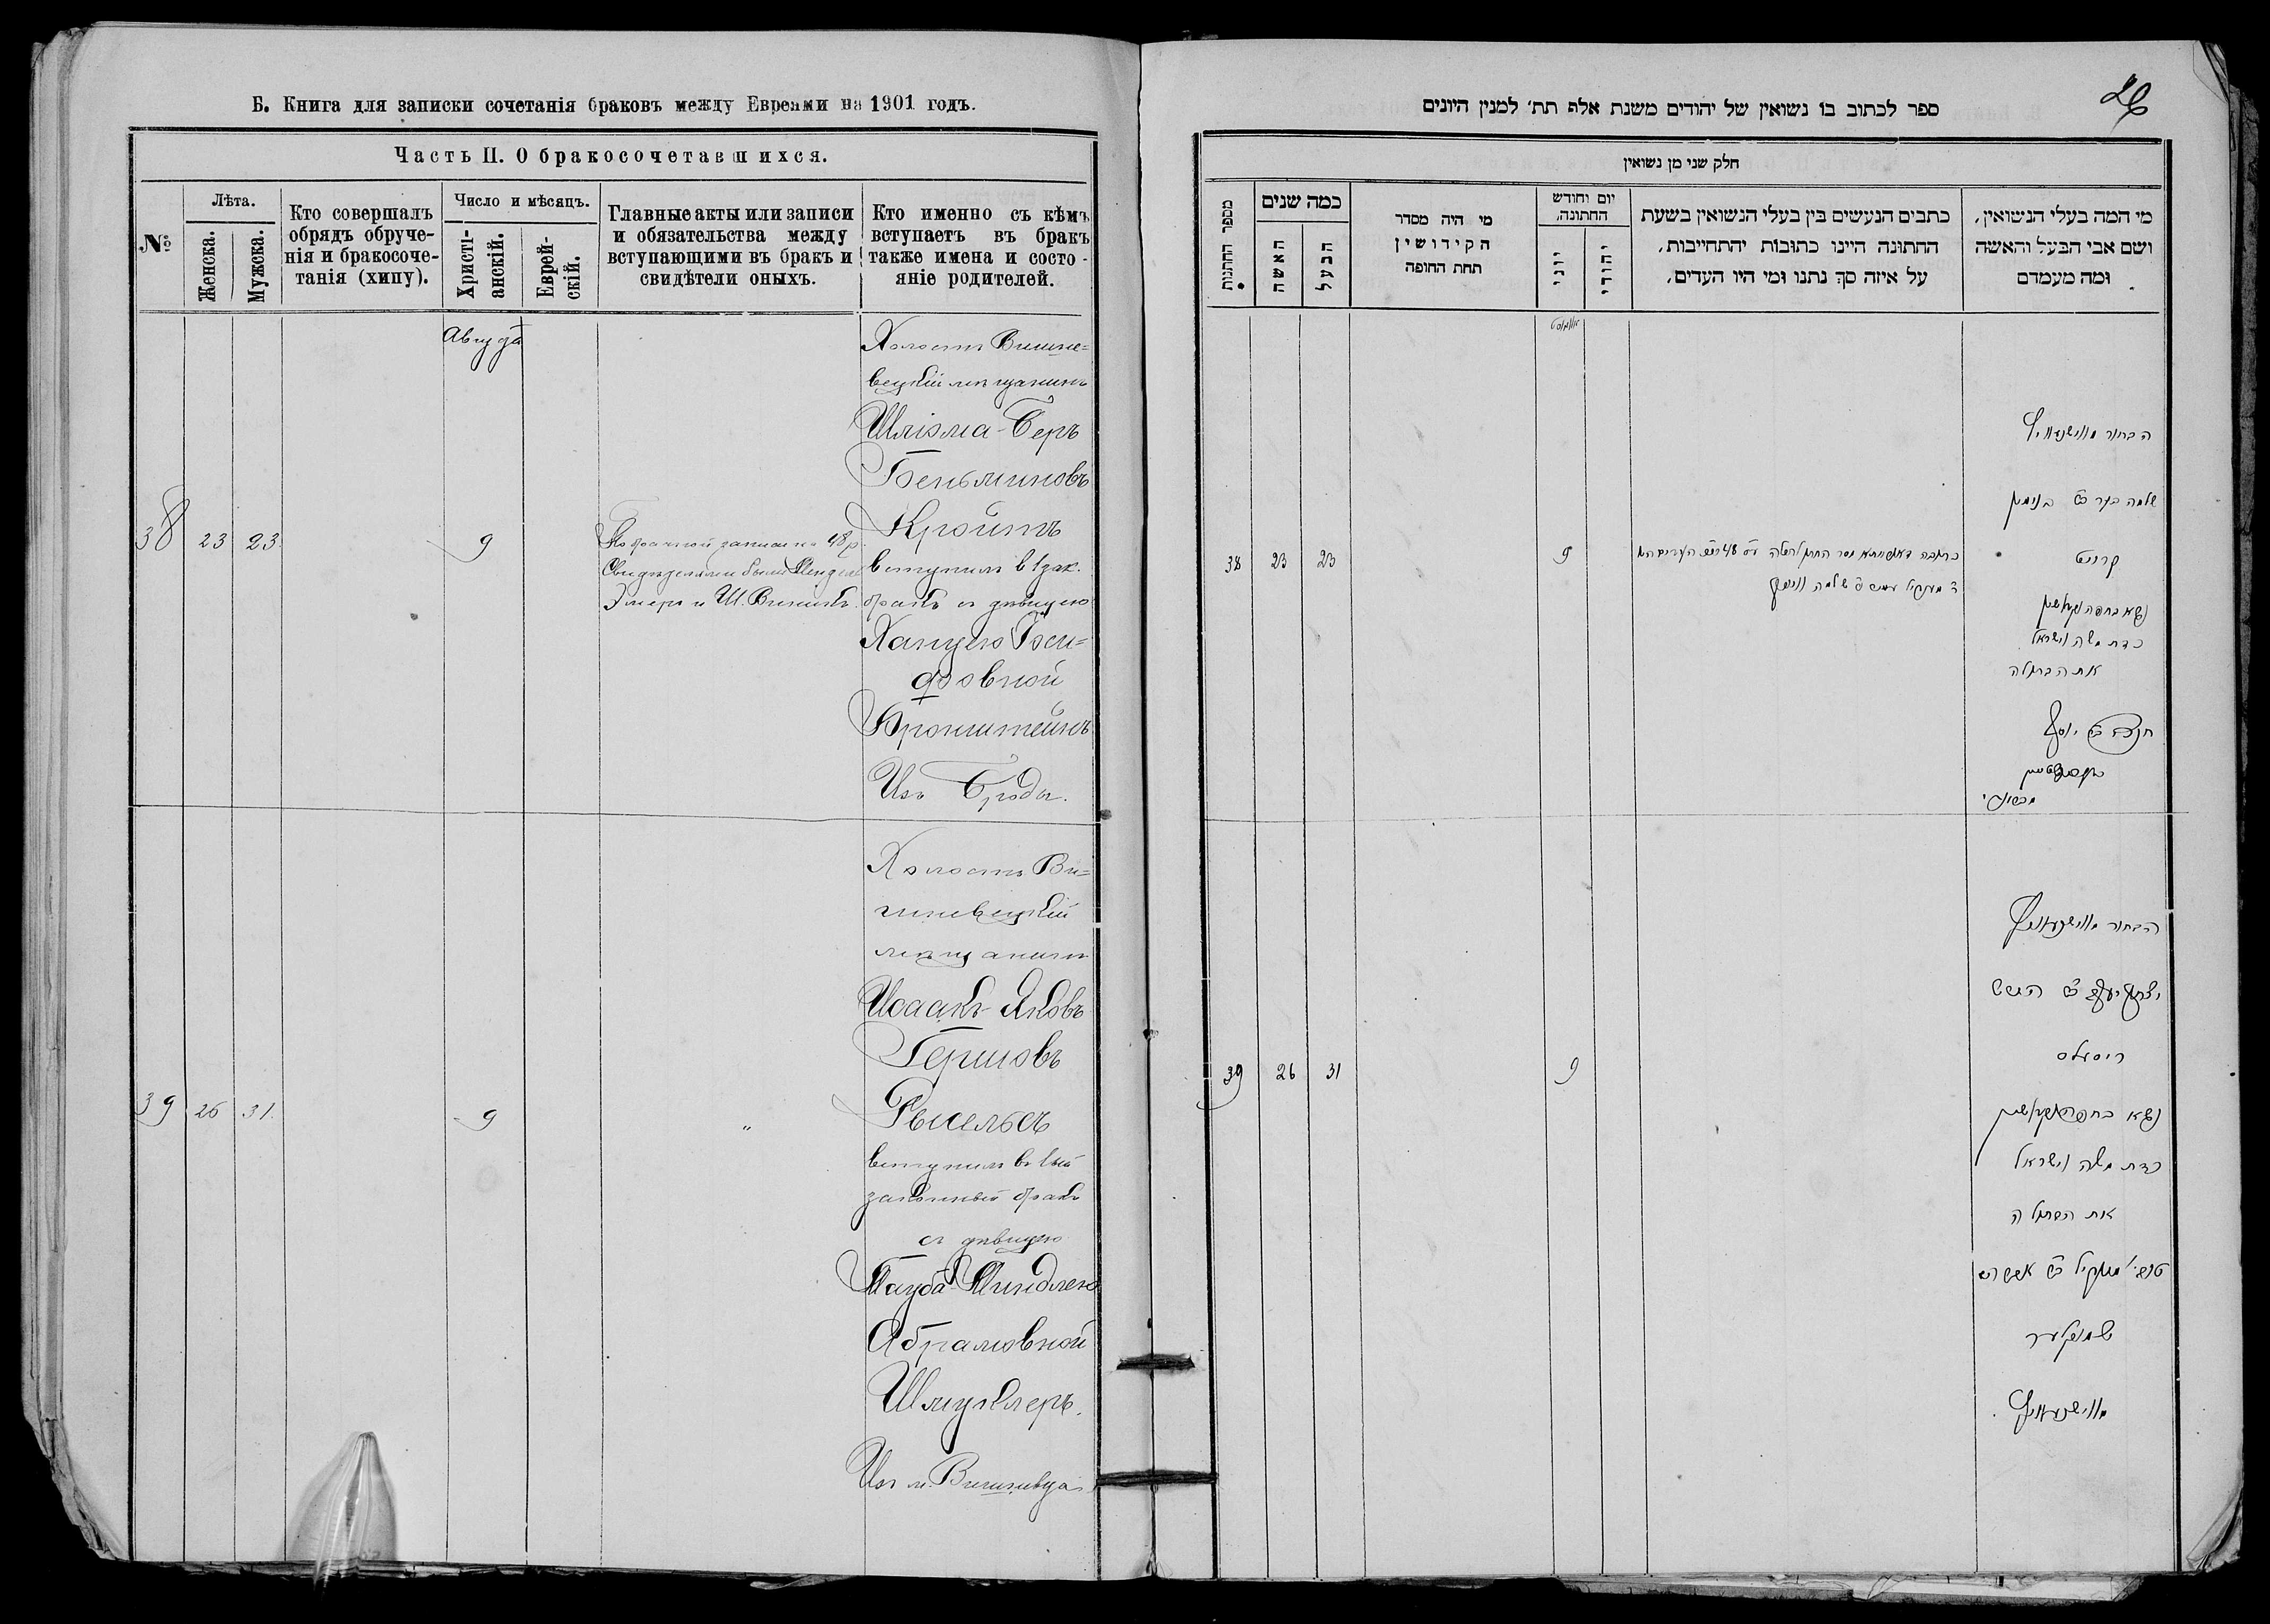 Б. Книга для записки сочетанія браковъ между Евреями на 1901 годъ.
Часть II. О бракосочетавшихся.
№
Лѣта.
Женска.
Мужска.
Кто совершалъ
обрядъ обруче-
нія и бракосоче-
танія (хипу).
Число и мѣсяцъ.
Христі-
анскій.
Еврей-
скій.
Главные акты или записи
и обязательства между
вступающими въ бракъ и
свидѣтели оныхъ.
Кто именно съ кѣмъ
вступаетъ въ бракъ
также имена и состо-
яніе родителей.
Августа
38
23
23
9
48 р.
Свидѣтелями были Мендель
и Ш.
Холостъ Вишне-
вецкій мѣщанинъ
Шлiома-Беръ
Беньминовъ
Кройтъ
вступилъ в 1 зак.
бракъ съ дѣвицею
Ханцею Іоси-
фовной
Бронштейнъ
Изъ Броды.
39
26
31.
9
"
Холостъ Ви-
шневецкій
мѣщанинъ
Исаакъ-Яковъ
Гершовъ
Рысельсъ
вступилъ въ 1ый
законный бракъ
съ дѣвицею
Тауба-Миндлею
Абрамовной
Шмуклеръ.
Изъ м. Вишневца
26
ספר לכתוב בו נשואין של יהודים משנת אלף תת׳ למנין היונים
חלק שני מן נשואין
מספר החתונות
כמה שנים
האשה
הבעל
מי היה מסדר
הקידושין
תחת החופה
יום וחודש
החתונה,
יוני
יהודי
כתבים הנעשים בין בעלי הנשואין בשעת
החתונה היינו כתובות יהתחייבות,
על איזה סך נתנו ומי היו העדים,
מי המה בעלי הנשואין,
ושם אבי הבעל והאשה
ומה מעמדם
אוגוסט
38
23
23
9
48
הבחור
שלמה בער ב״ר בנימין
קרויט
נשא בחופה וקידושין
כדת משה וישראל
את הבתולה
חנצה ב״ר יוסף
39
26
31
9
הבחור
יצחק יעקב ב״ר הירש
ריסעלס
נשא בחופה וקידושין
כדת משה וישראל
את הבתולה
שמוקלער